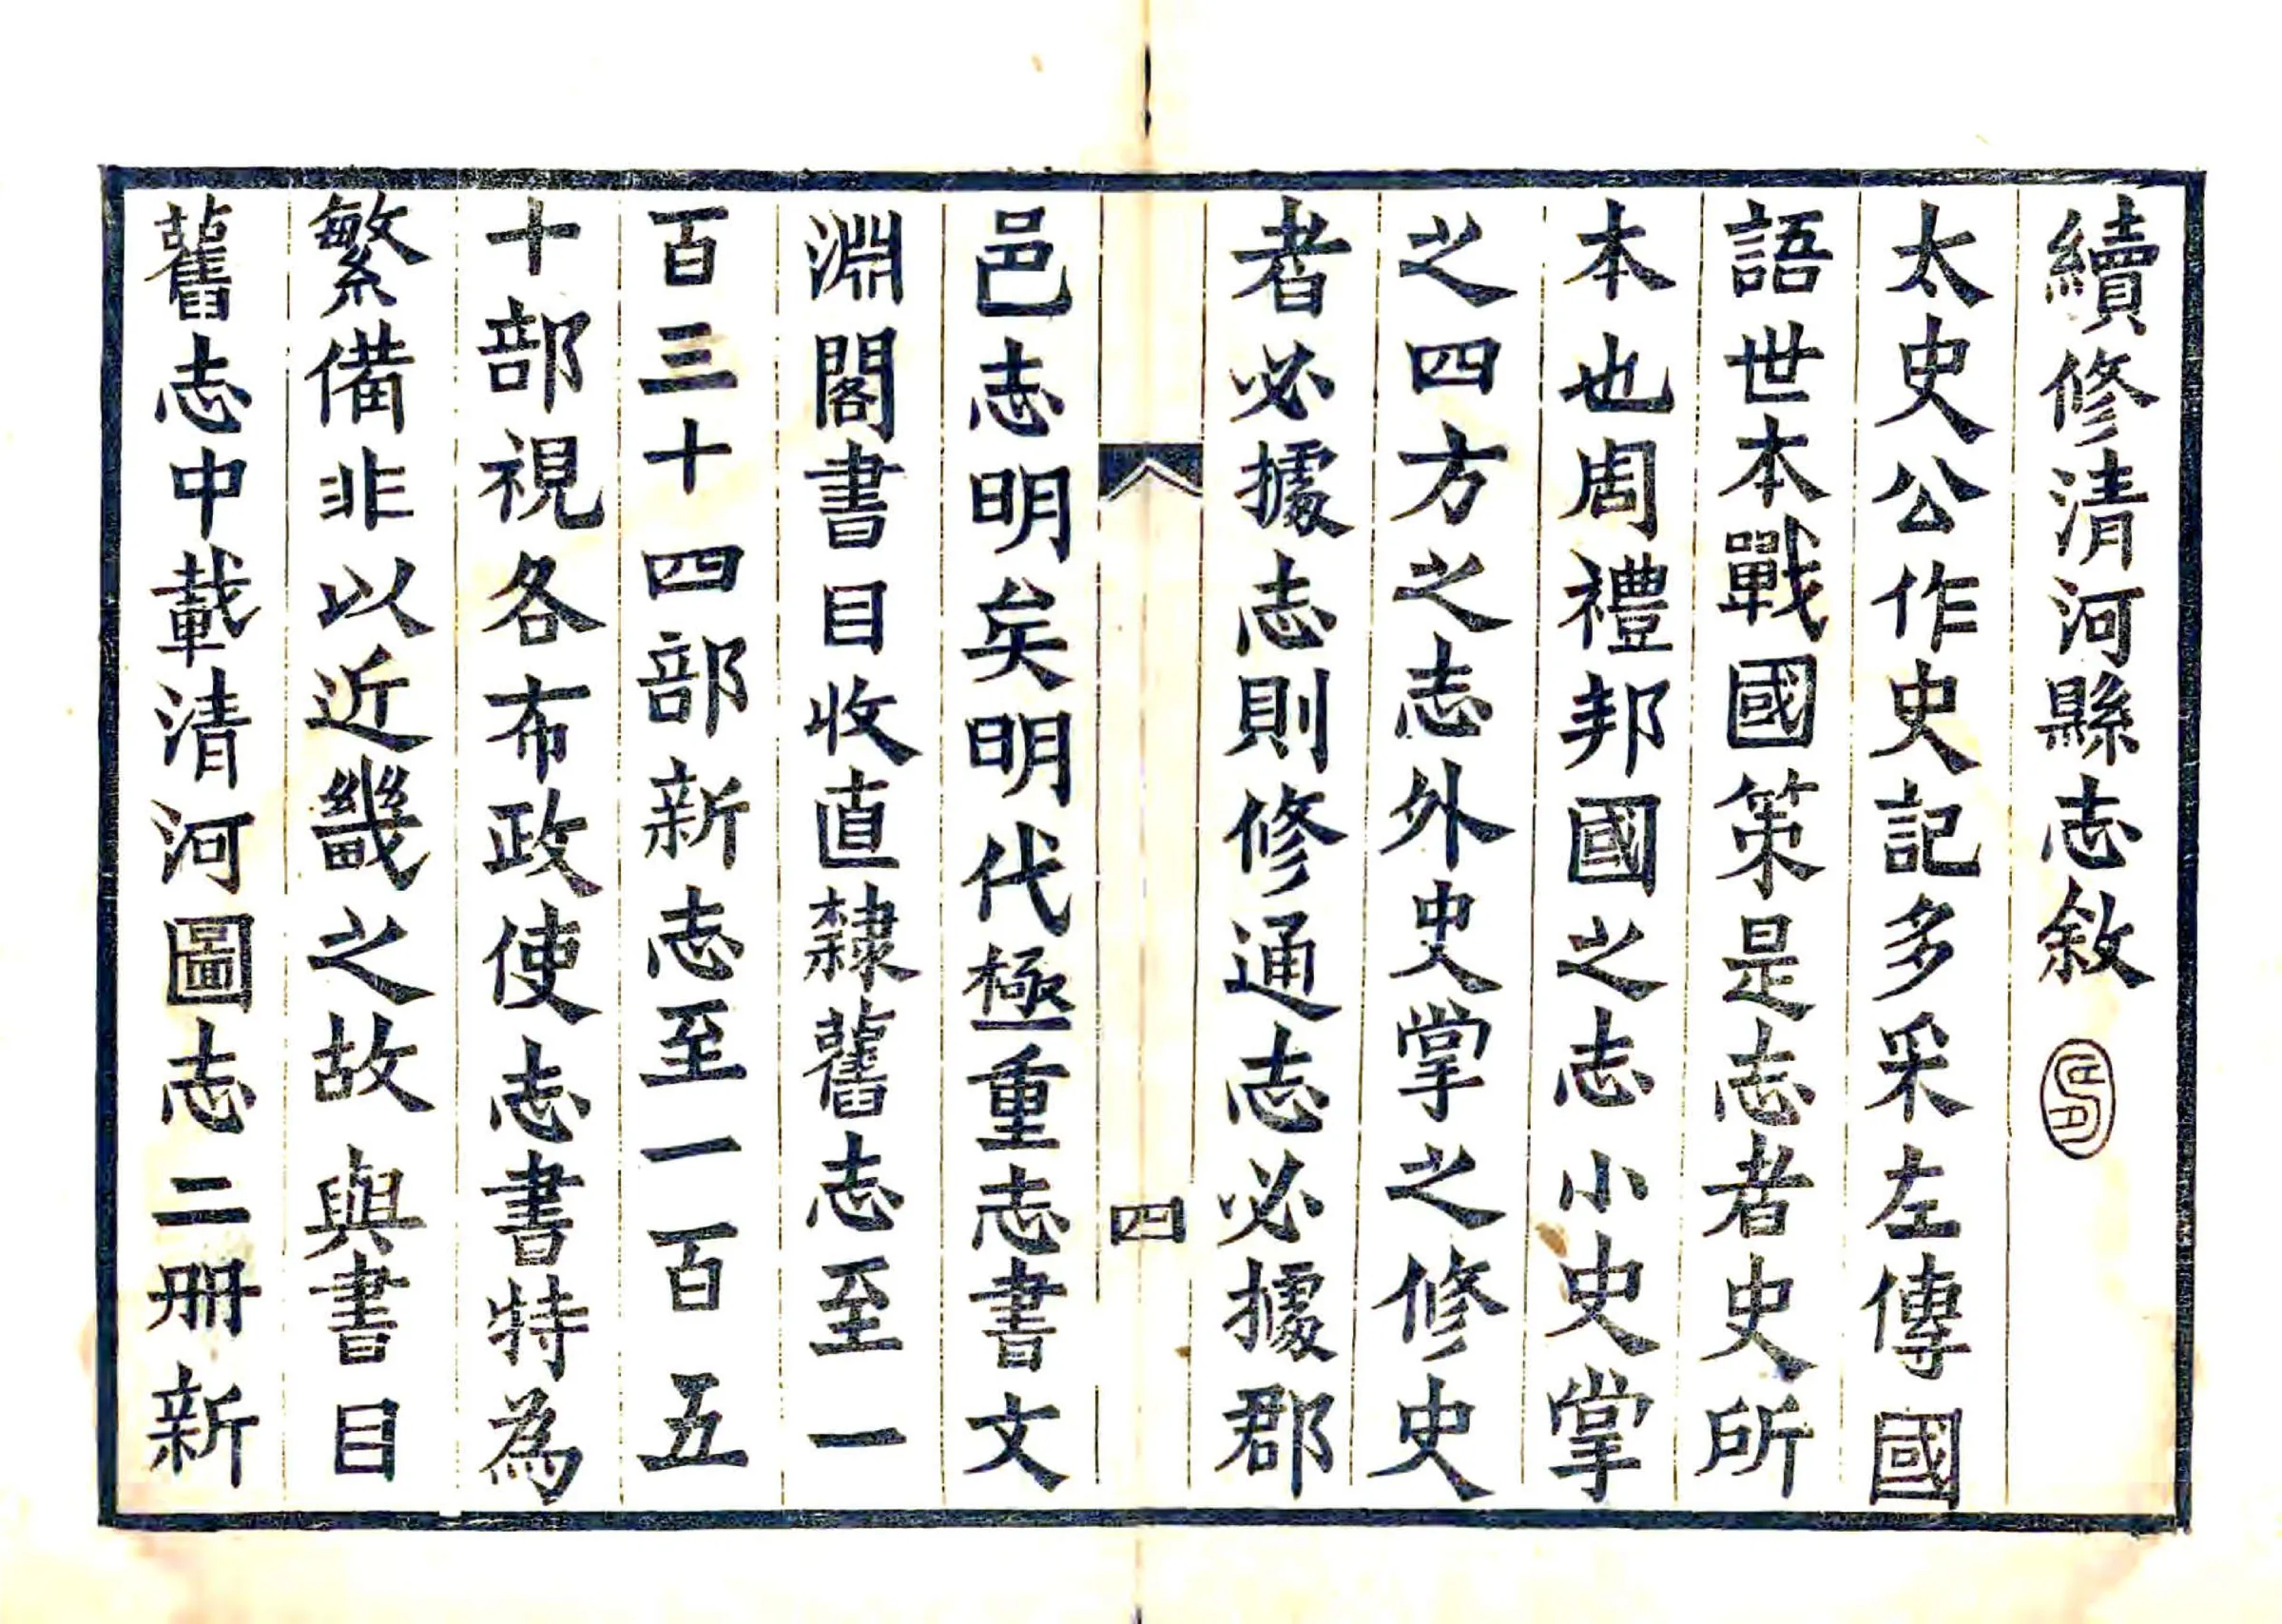 續修清河縣志敘
太史公作史記多采左傳國
語世本戰國策是志者史所
本也周禮邦國之志小史掌
之四方之志外史掌之修史
者必據志則修通志必據郡
四
邑志明矣明代極重志書文
淵閣書目收直隸舊志至一
百三十四部新志至一百五
十部視各布政使志書特為
繁備非以近畿之故與書目
舊志中載清河圖志二冊新